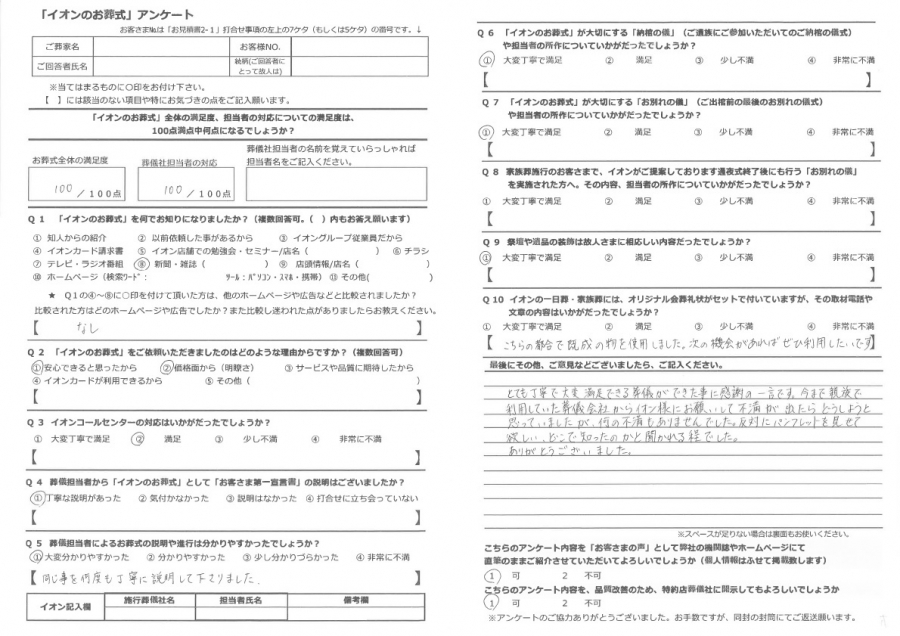 「イオンのお葬式」アンケート
お客さま№は「お見積書2-1」打合せ事項の左上の7ケタ（もしくは5ケタ）の番号です。↓
ご葬家名
お客様NO.
ご回答者氏名
続柄(ご回答者に
とって故人は)
※当てはまるものに○印をお付け下さい。
【　】には該当のない項目や特にお気づきの点をご記入願います。
「イオンのお葬式」全体の満足度、担当者の対応についての満足度は、
100点満点中何点になるでしょうか？
お葬式全体の満足度
葬儀社担当者の対応
葬儀社担当者の名前を覚えていらっしゃれば
担当者名をご記入ください。
100 ／100点
100 ／100点
Q 1 「イオンのお葬式」を何でお知りになりましたか？（複数回答可。（　）内もお答え願います）
① 知人からの紹介 ② 以前依頼した事があるから ③ イオングループ従業員だから
④ イオンカード請求書 ⑤ イオン店舗での勉強会・セミナー/店名（　） ⑥ チラシ
⑦ テレビ・ラジオ番組 ⑧ 新聞・雑誌（　） ⑨ 店頭情報/店名（　）
⑩ ホームページ（検索ﾜｰﾄﾞ：　ﾂｰﾙ：ﾊﾟｿｺﾝ・ｽﾏﾎ・携帯） ⑪ その他(　)
★ Q１の④～⑧に○印を付けて頂いた方は、他のホームページや広告などと比較されましたか？
比較された方はどのホームページや広告でしたか？また比較し迷われた点がありましたらお教えください。
【　なし　】
Q 2 「イオンのお葬式」をご依頼いただきましたのはどのような理由からですか？（複数回答可）
①安心できると思ったから ②価格面から（明瞭さ） ③ サービスや品質に期待したから
④ イオンカードが利用できるから ⑤ その他（　）
【　】
Q 3 イオンコールセンターの対応はいかがだったでしょうか？
① 大変丁寧で満足 ② 満足 ③ 少し不満 ④ 非常に不満
【　】
Q 4 葬儀担当者から「イオンのお葬式」として「お客さま第一宣言書」の説明はございましたか？
①丁寧な説明があった ② 気付かなかった ③ 説明はなかった ④ 打合せに立ち会っていない
【　】
Q 5 葬儀担当者によるお葬式の説明や進行は分かりやすかったでしょうか？
①大変分かりやすかった ② 分かりやすかった ③ 少し分かりづらかった ④ 非常に不満
【 同じ事を何度も丁寧に説明して下さりました。 】
イオン記入欄
施行葬儀社名
担当者氏名
備考欄
Q 6 「イオンのお葬式」が大切にする「納棺の儀」（ご遺族にご参加いただいてのご納棺の儀式）
や担当者の所作についていかがだったでしょうか？
① 大変丁寧で満足 ② 満足 ③ 少し不満 ④ 非常に不満
【　】
Q 7 「イオンのお葬式」が大切にする「お別れの儀」（ご出棺前の最後のお別れの儀式）
や担当者の所作についていかがだったでしょうか？
① 大変丁寧で満足 ② 満足 ③ 少し不満 ④ 非常に不満
【　】
Q 8 家族葬施行のお客さまで、イオンがご提案しております通夜式終了後にも行う「お別れの儀」
を実施された方へ。その内容、担当者の所作についていかがでしょうか？
① 大変丁寧で満足 ② 満足 ③ 少し不満 ④ 非常に不満
【　】
Q 9 祭壇や遺品の装飾は故人さまに相応しい内容だったでしょうか？
① 大変丁寧で満足 ② 満足 ③ 少し不満 ④ 非常に不満
【　】
Q 10 イオンの一日葬・家族葬には、オリジナル会葬礼状がセットで付いていますが、その取材電話や
文章の内容はいかがだったでしょうか？
① 大変丁寧で満足 ② 満足 ③ 少し不満 ④ 非常に不満
【 こちらの都合で既成の物を使用しました。次の機会があればぜひ利用したいです 】
最後にその他、ご意見などございましたら、ご記入ください。
とても丁寧で大変満足できる葬儀ができた事に感謝の一言です。今まで親族で
利用していた葬儀会社からイオン様にお願いして不満が出たらどうしようと
思っていましたが、何の不満もありませんでした。反対にパンフレットを見せて
欲しい、どこで知ったのかと聞かれる程でした。
ありがとうございました。
※スペースが足りない場合は裏面もお使いください。
こちらのアンケート内容を「お客さまの声」として弊社の機関誌やホームページにて
直筆のままご紹介させていただいてよろしいでしょうか（個人情報はふせて掲載致します）
1 可 2 不可
こちらのアンケート内容を、品質改善のため、特約店葬儀社に開示してもよろしいでしょうか
1 可 2 不可
※アンケートのご協力ありがとうございました。お手数ですが、同封の封筒にてご返送願います。